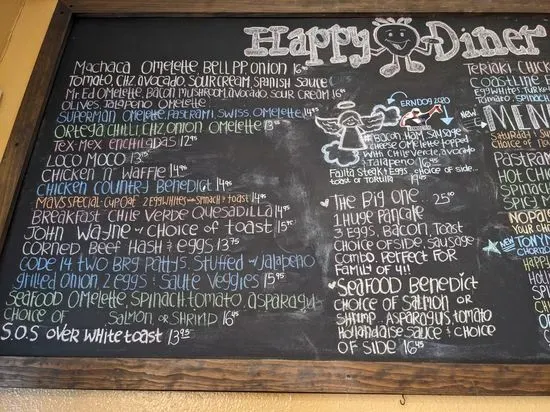 Happy Diner
Machaca Omelette Bell PP Onion 16.45
Tomato, Chz, Avocado, Sour Cream, Spanish Sauce
Mr Ed Omelette, Bacon, Mushroom, Avocado, Sour Cream 16.45
Olives, Jalapeno Omelette
Superman Omelette, Pastrami, Swiss, Omelette 14.95
Ortega Chilli Chz Onion Omelette
Tex-Mex Enchiladas 12.95
Loco Moco
Chicken n' Waffle 14.95
Chicken Country Benedict 14.95
Mav's Special Cup Oat 2 Egg Whites Spinach & Toast 14.95
Breakfast Chile Verde Quesadilla 14.95
John Wayne w/ Choice of Toast
Corned Beef Hash & Eggs 13.75
Code 14 Two Brg Pattys, Stuffed w/ Jalapeno
Grilled Onion 2 Eggs & Saute Veggies 15.95
Seafood Omelette, Spinach Tomato, Asparagus
Choice of Salmon or Shrimp 16.45
S.O.S over White Toast 13.95
New
ERNDOG 2020
Bacon, Ham, Sausage
Cheese Omelette Topped
with Chile Verde, Avocado
& Jalapeno 16.45
Fajita Steak & Eggs Choice of Side...
Toast or Tortilla
The Big One .. 25.90
1 Huge Pancake
3 Eggs, Bacon, Toast
Choice of Side, Sausage
Combo. Perfect for
Family of 4!!
Seafood Benedict
Choice of Salmon or
Shrimp. Asparagus, Tomato
Hollandaise Sauce & Choice
of Side 16.45
Teriaki Chick
Coastline
Egg Whites, Turke
Tomato, Spinach
New
Menu
Saturday & S
Choice of
Pastram
Hot Ch
Spinac
Spicy
Nopal
New Tony
Choriz
Happ